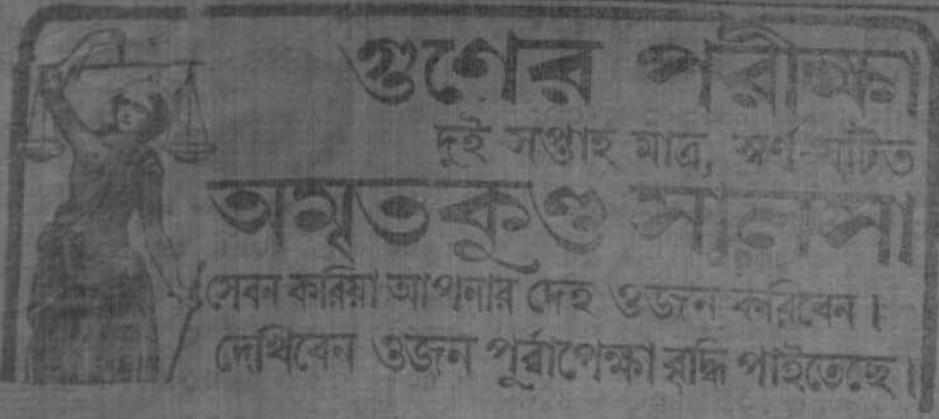 গুণের পরীক্ষা
দুই সপ্তাহ মাত্র, স্বর্ণ-ঘটিত
অমৃতকুণ্ড সালসা
সেবন করিয়া আপনার দেহ ওজন করিবেন।
দেখিবেন ওজন পূর্ব্বাপেক্ষা বৃদ্ধি পাইতেছে।